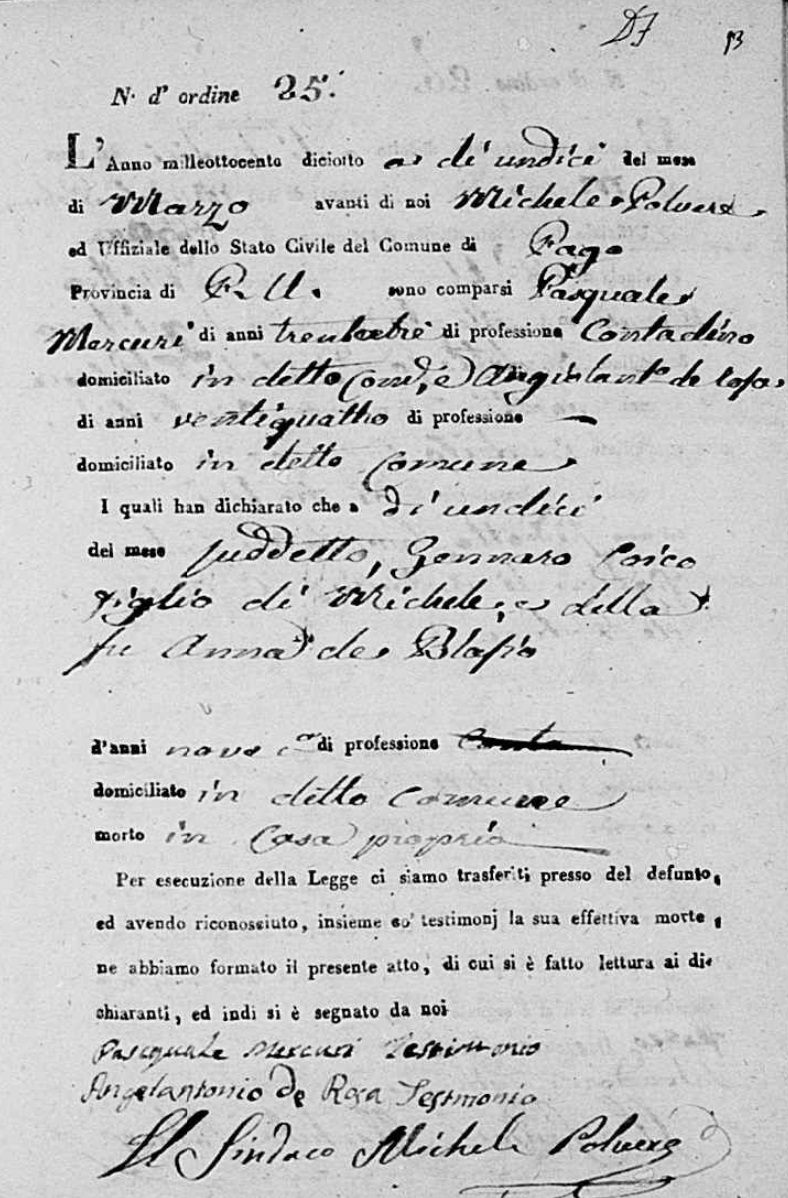 13
N. d' ordine 25.
L'Anno milleottocento diciotto a dì undici del mese
di Marzo avanti di noi Michele Polvere
ed Uffiziale dello Stato Civile del Comune di Pago
Provincia di P. U. sono comparsi Pasquale
Mercuri di anni trentatre di professione Contadino
domiciliato in detto Com.e, e Angiolant.o de Rosa
di anni ventiquattro di professione
domiciliato in detto Comune
I quali han dichiarato che a dì undici
del mese suddetto, Gennaro
figlio di Michele, e della
fu Anna de Blasio
d'anni nove di professione
domiciliato in detto Comune
morto in Casa propria
Per esecuzione della Legge ci siamo trasferiti presso del defunto,
ed avendo riconossiuto, insieme co' testimonj la sua effettiva morte,
ne abbiamo formato il presente atto, di cui si è fatto lettura ai di-
chiaranti, ed indi si è segnato da noi
Pasquale Mercuri Testimonio
Angelantonio De Rosa Testmonio
Il Sindaco Michele Polvere